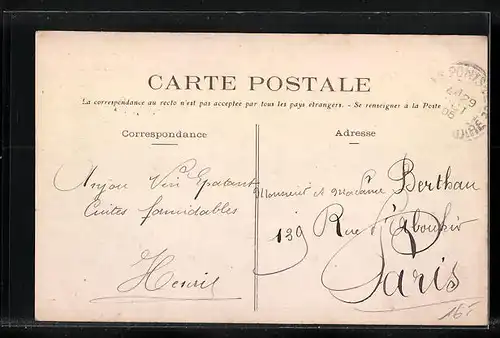 CARTE POSTALE
La correspondance au recto n'est pas acceptée par tous les pays étrangers. - Se renseigner à la Poste
Correspondance
Adresse
Anjou Vin Epatant
Cuites formidables
Henri
Monsieur et Madame Berthau
139 Rue d'Aboukir
Paris
PONTS
29
05